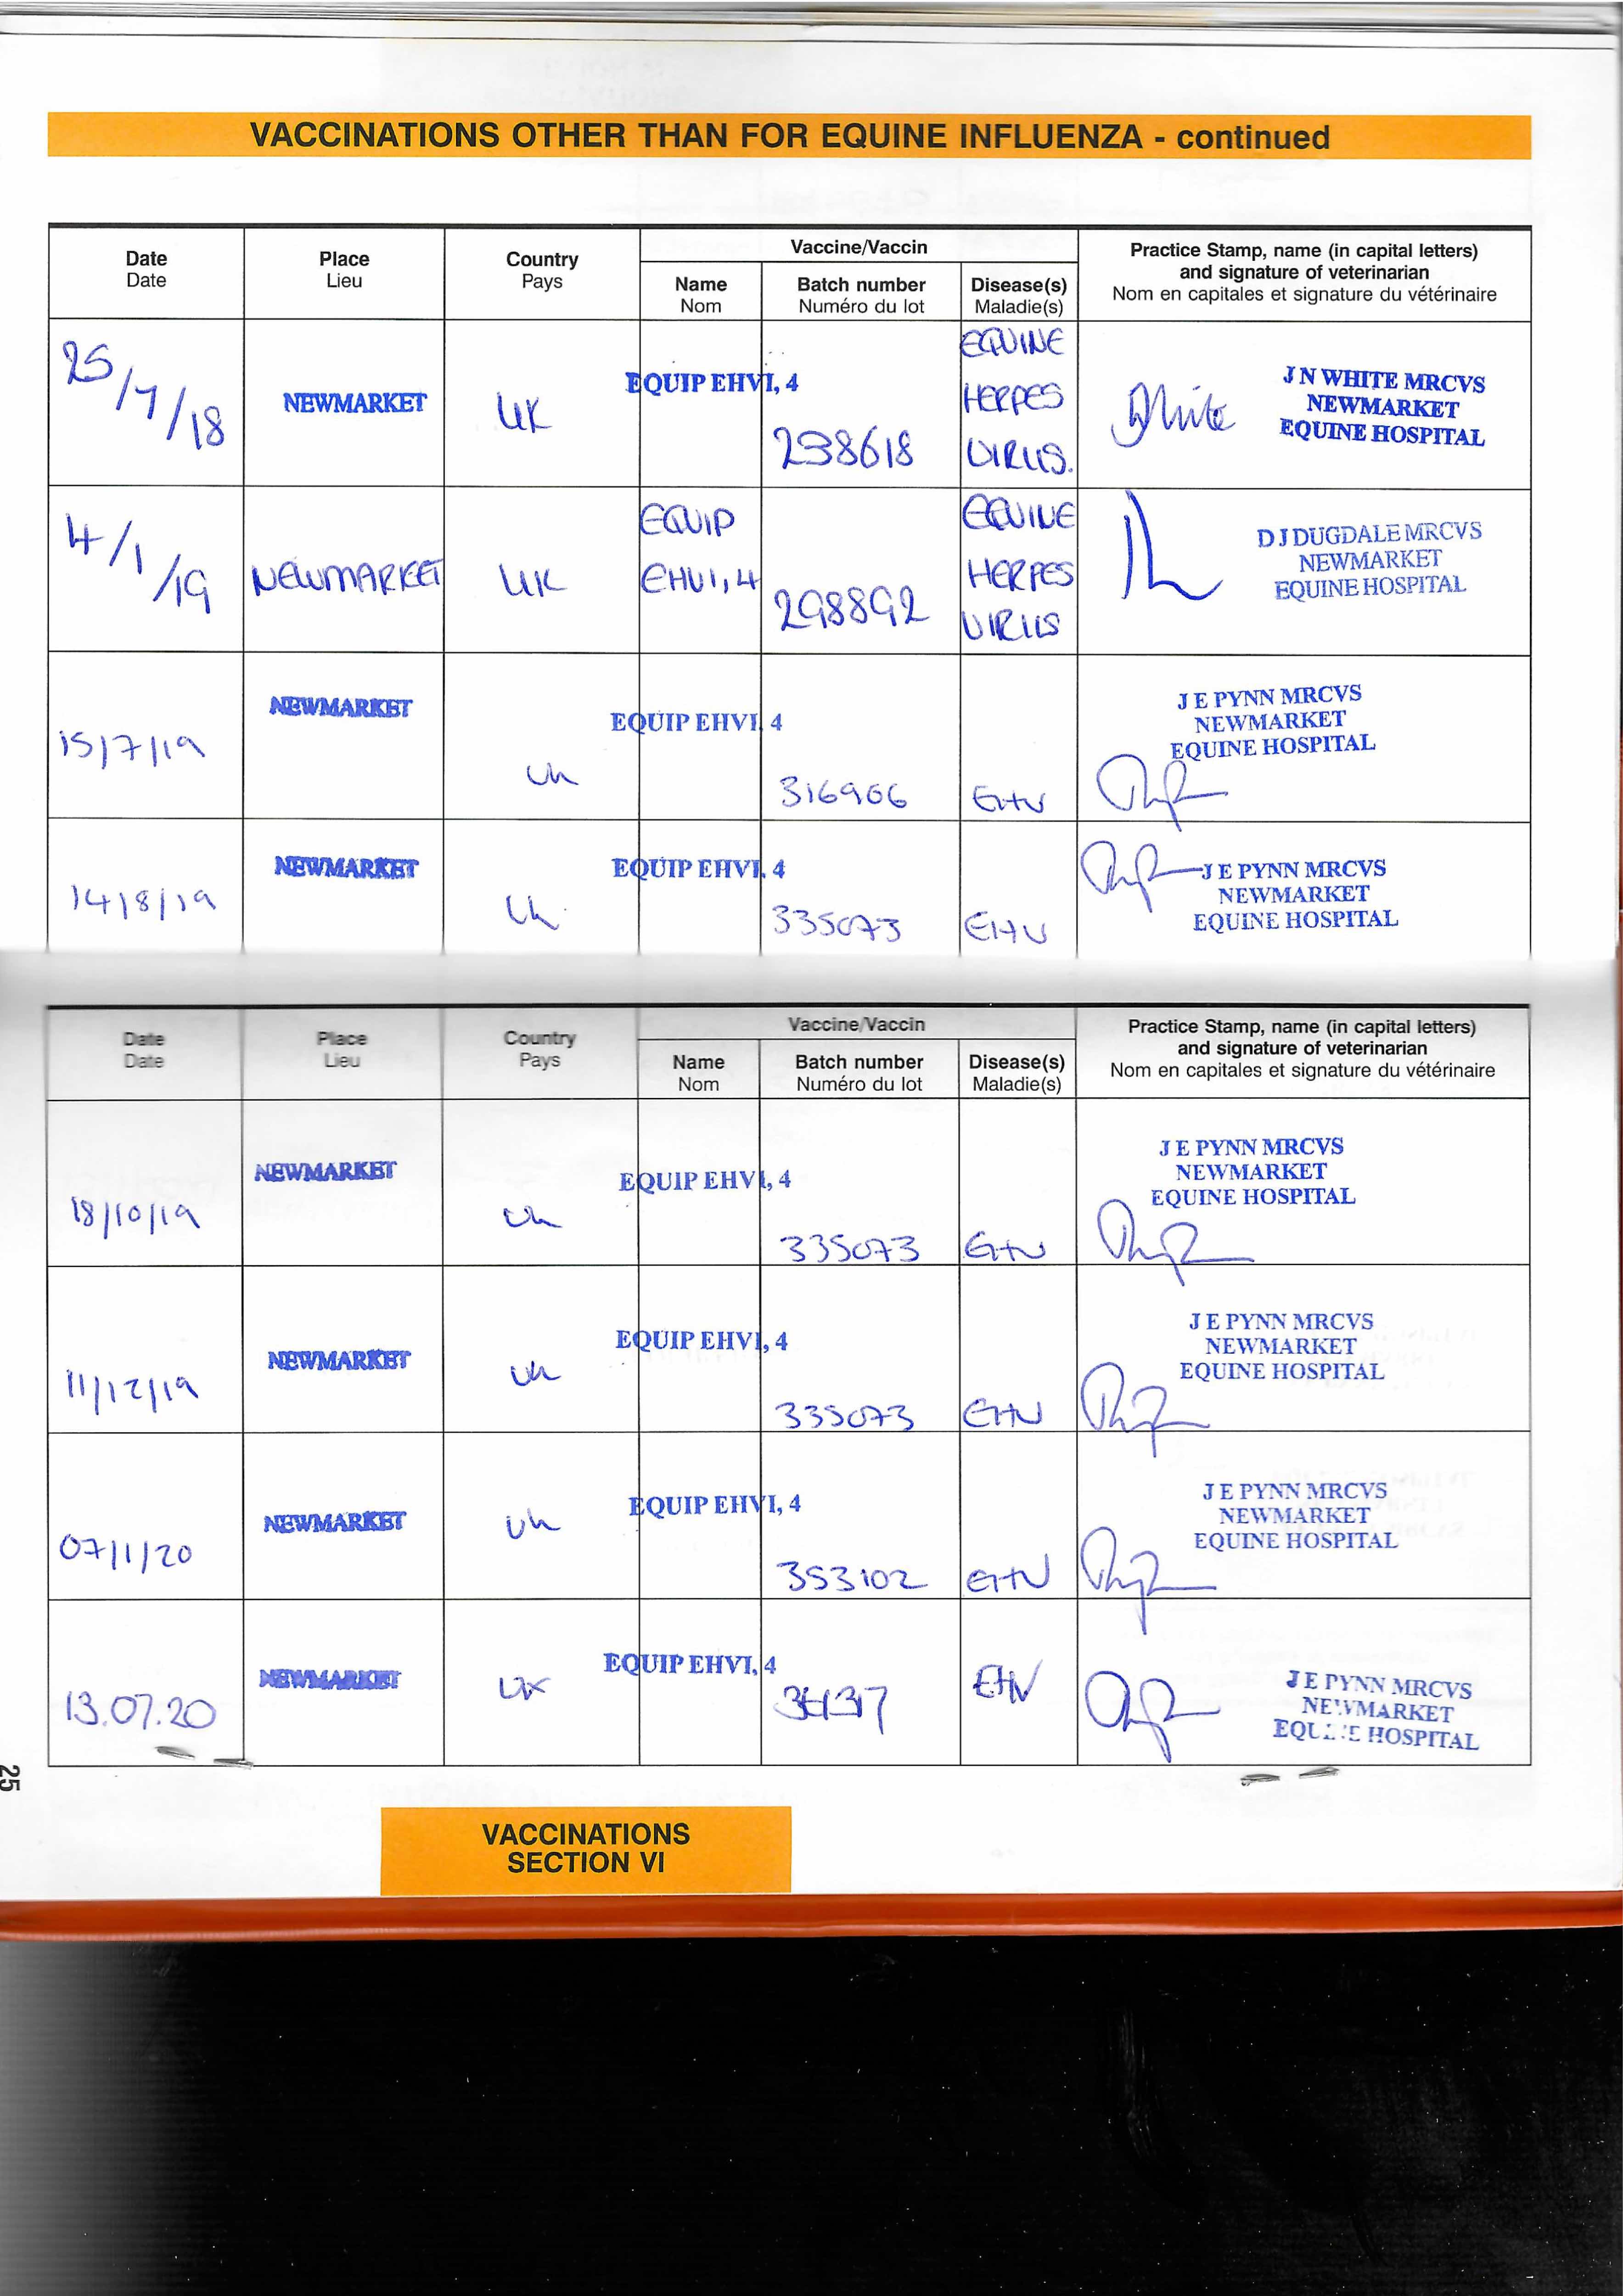 VACCINATIONS OTHER THAN FOR EQUINE INFLUENZA - continued
Date Date Place Lieu Country Pays Vaccine/Vaccin Name Nom Batch number Numéro du lot Disease(s) Maladie(s) Practice Stamp, name (in capital letters) and signature of veterinarian Nom en capitales et signature du vétérinaire
25/7/18 NEWMARKET UK EQUIP EHV1, 4 298618 EQUINE HERPES VIRUS. J N WHITE MRCVS NEWMARKET EQUINE HOSPITAL
4/1/19 NEWMARKET UK EQUIP EHV1, 4 298892 EQUINE HERPES VIRUS D J DUGDALE MRCVS NEWMARKET EQUINE HOSPITAL
15/7/19 NEWMARKET UK EQUIP EHV1, 4 316906 EHV J E PYNN MRCVS NEWMARKET EQUINE HOSPITAL
14/8/19 NEWMARKET UK EQUIP EHV1, 4 335073 EHV J E PYNN MRCVS NEWMARKET EQUINE HOSPITAL
Date Date Place Lieu Country Pays Vaccine/Vaccin Name Nom Batch number Numéro du lot Disease(s) Maladie(s) Practice Stamp, name (in capital letters) and signature of veterinarian Nom en capitales et signature du vétérinaire
18/10/19 NEWMARKET UK EQUIP EHV1, 4 335073 EHV J E PYNN MRCVS NEWMARKET EQUINE HOSPITAL
11/12/19 NEWMARKET UK EQUIP EHV1, 4 335073 EHV J E PYNN MRCVS NEWMARKET EQUINE HOSPITAL
07/1/20 NEWMARKET UK EQUIP EHV1, 4 353102 EHV J E PYNN MRCVS NEWMARKET EQUINE HOSPITAL
13.07.20 NEWMARKET UK EQUIP EHV1, 4 EHV J E PYNN MRCVS NEWMARKET EQUINE HOSPITAL
25
VACCINATIONS
SECTION VI